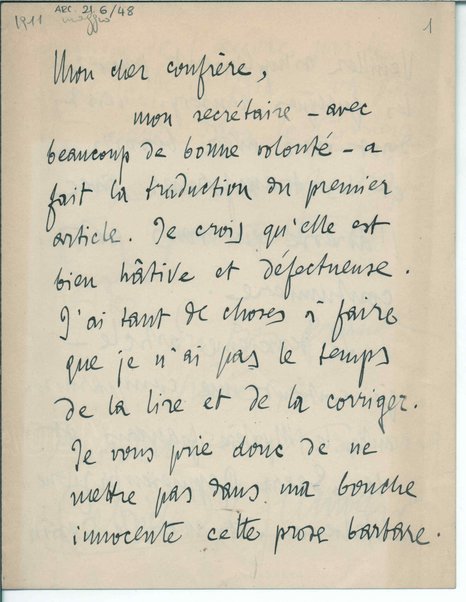 ARC. 21.6/48
1911 maggio
1
Mon cher confrère,
mon secrétaire – avec
beaucoup de bonne volonté – a
fait la traduction du premier
article. Je crois qu'elle est
bien hâtive et défectueuse.
J'ai tant de choses à faire
que je n'ai pas le temps
de la lire et de la corriger.
Je vous prie donc de ne
mettre pas dans ma bouche
innocente cette prose barbare.